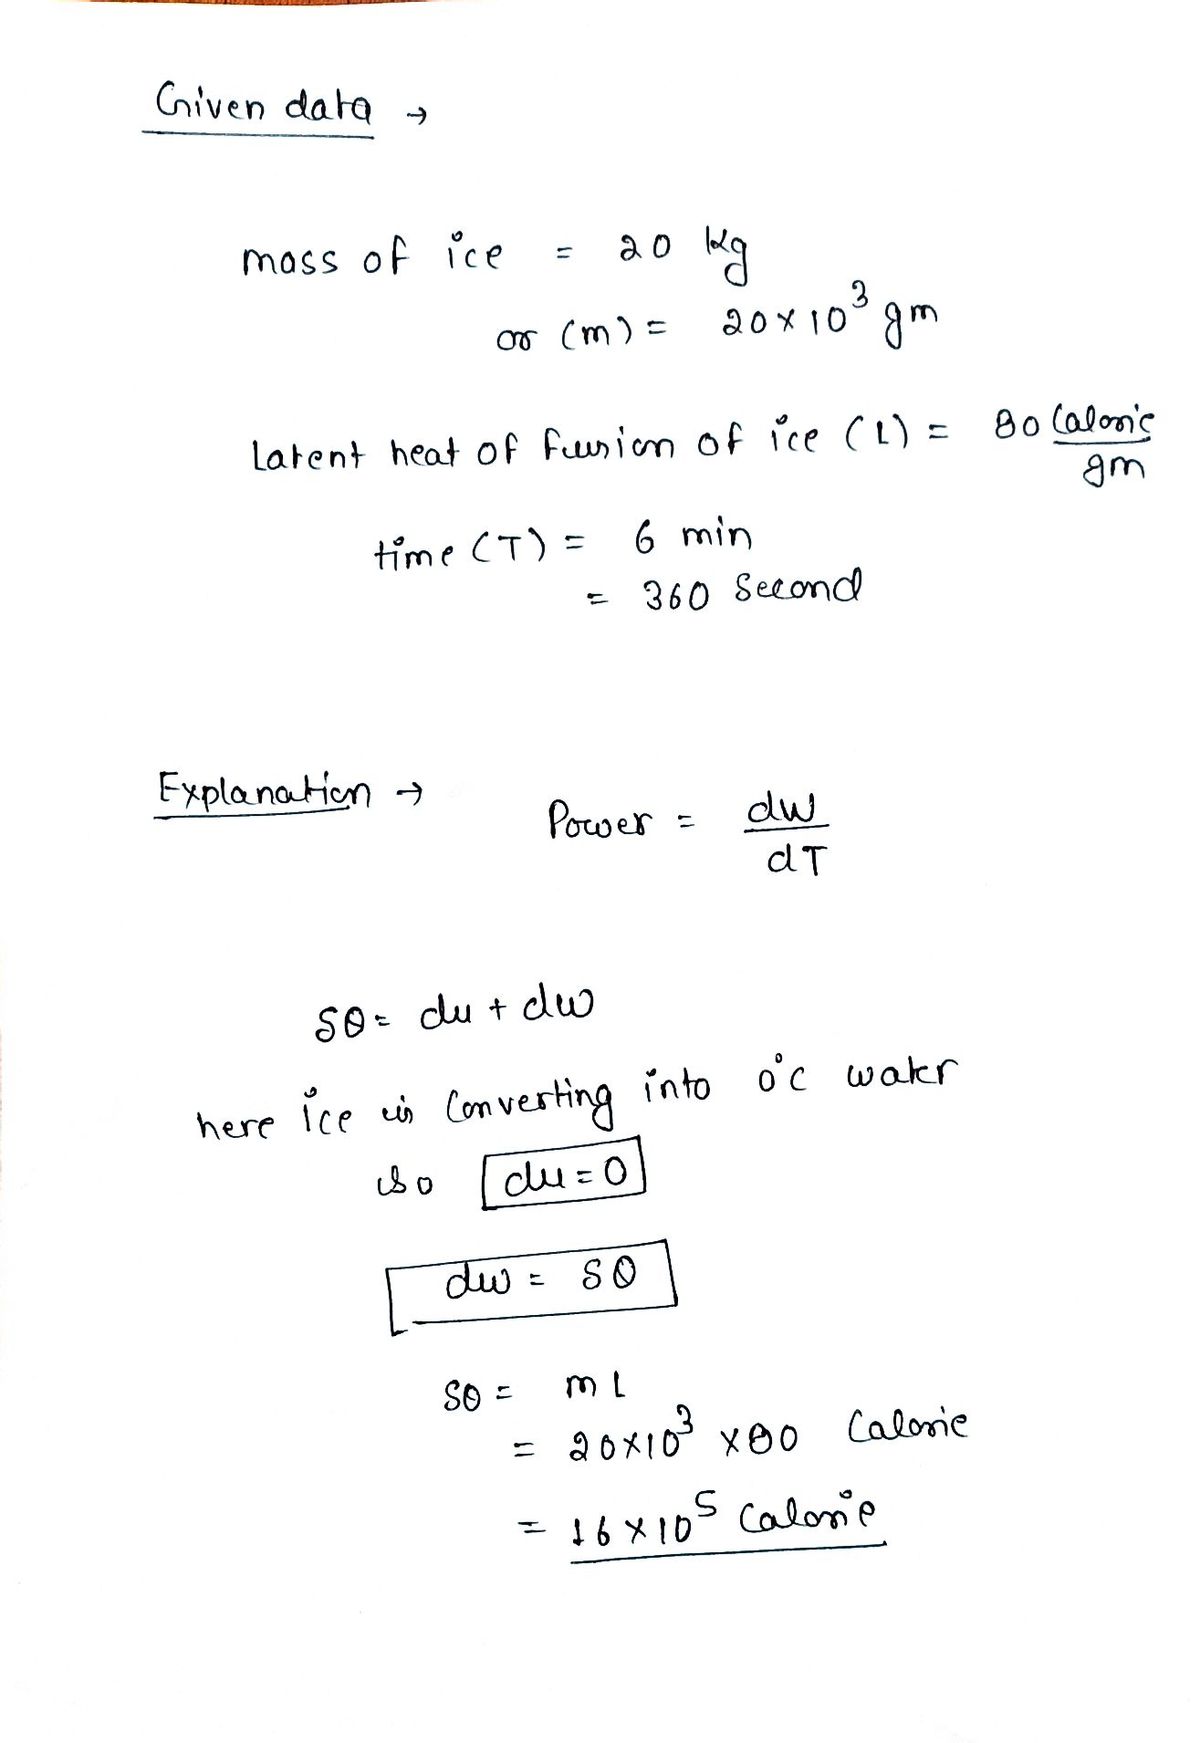 Given data →
mass of ice = 20 kg
or (m) = 20×10³ gm
Latent heat of fusion of ice (L) = 80 Calorie/gm
time (T) = 6 min
= 360 Second
Explanation → Power = dw/dT
δQ = du + dw
here ice is Converting into 0°C water
so du = 0
dw = δQ
δQ = mL
= 20×10³ ×80 Calorie
= 16×10⁵ Calorie